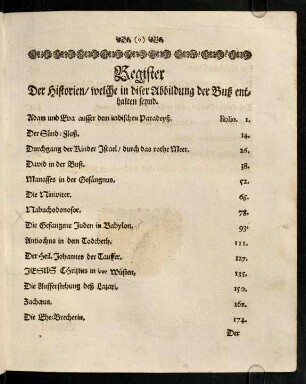 (0)
Register
Der Historien/ welche in diser Abbildung der Buß ent-
halten seynd.
Adam und Eva ausser dem irdischen Paradeyß. Folio. 1.
Der Sünd-Fluß. 14.
Durchgang der Kinder Israel/ durch das rothe Meer. 26.
David in der Buß. 38.
Manasses in der Gefängnus. 52.
Die Niniviter. 65.
Nabuchodonosor. 78.
Die Gefangene Juden in Babylon. 93.
Antiochus in dem Todtbeth. 111.
Der Heil. Johannes der Tauffer. 127.
JESUS Christus in der Wüsten. 135.
Die Aufferstehung deß Lazari. 150.
Zachæus. 162.
Die Ehe-Brecherin. 174.
Der